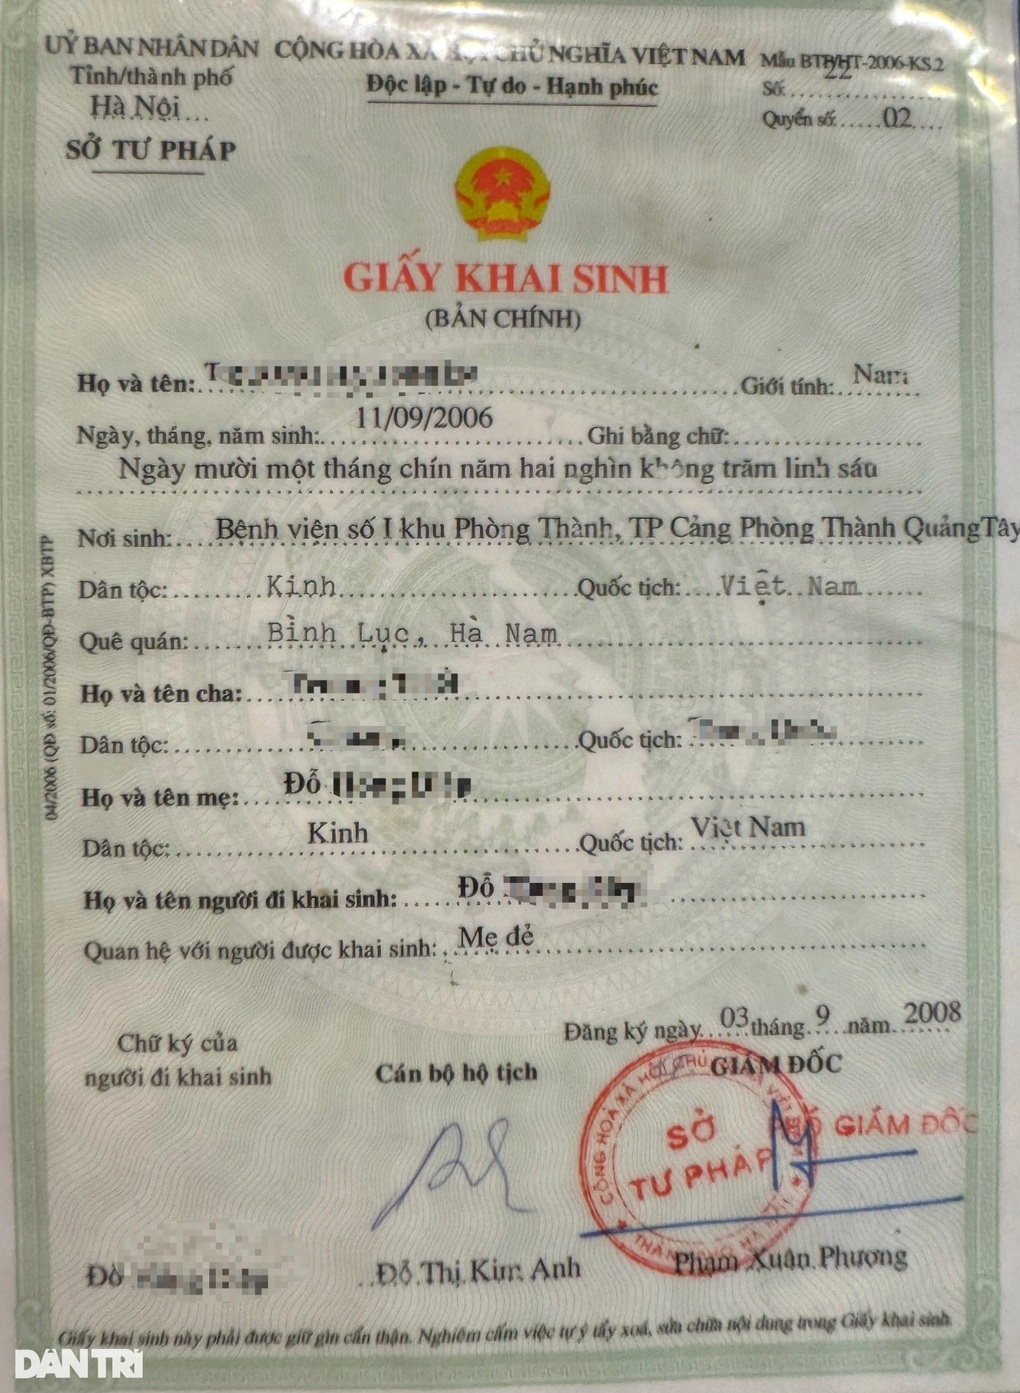 ỦY BAN NHÂN DÂN CỘNG HÒA XÃ HỘI CHỦ NGHĨA VIỆT NAM Mẫu BTP/HT-2006-KS.2
Tỉnh/thành phố Độc lập - Tự do - Hạnh phúc Số: 22
Hà Nội Quyển số: 02
SỞ TƯ PHÁP
GIẤY KHAI SINH
(BẢN CHÍNH)
Họ và tên: Giới tính: Nam
Ngày, tháng, năm sinh: 11/09/2006 Ghi bằng chữ:
Ngày mười một tháng chín năm hai nghìn không trăm linh sáu
Nơi sinh: Bệnh viện số I khu Phòng Thành, TP Cảng Phòng Thành QuảngTây
Dân tộc: Kinh Quốc tịch: Việt Nam
Quê quán: Bình Lục, Hà Nam
Họ và tên cha:
Dân tộc: Quốc tịch:
Họ và tên mẹ: Đỗ
Dân tộc: Kinh Quốc tịch: Việt Nam
Họ và tên người đi khai sinh: Đỗ
Quan hệ với người được khai sinh: Mẹ đẻ
Đăng ký ngày 03 tháng 9 năm 2008
Chữ ký của
người đi khai sinh
Cán bộ hộ tịch
GIÁM ĐỐC
PHÓ GIÁM ĐỐC
CỘNG HÒA XÃ HỘI CHỦ NGHĨA VIỆT NAM
SỞ
TƯ PHÁP
THÀNH PHỐ HÀ NỘI
Đỗ
Đỗ Thị Kim Anh
Phạm Xuân Phương
Giấy khai sinh này phải được giữ gìn cẩn thận. Nghiêm cấm việc tự ý tẩy xoá, sửa chữa nội dung trong Giấy khai sinh.
04/2006 (QĐ số: 01/2006/QĐ-BTP) XBTP
DÂN TRÍ